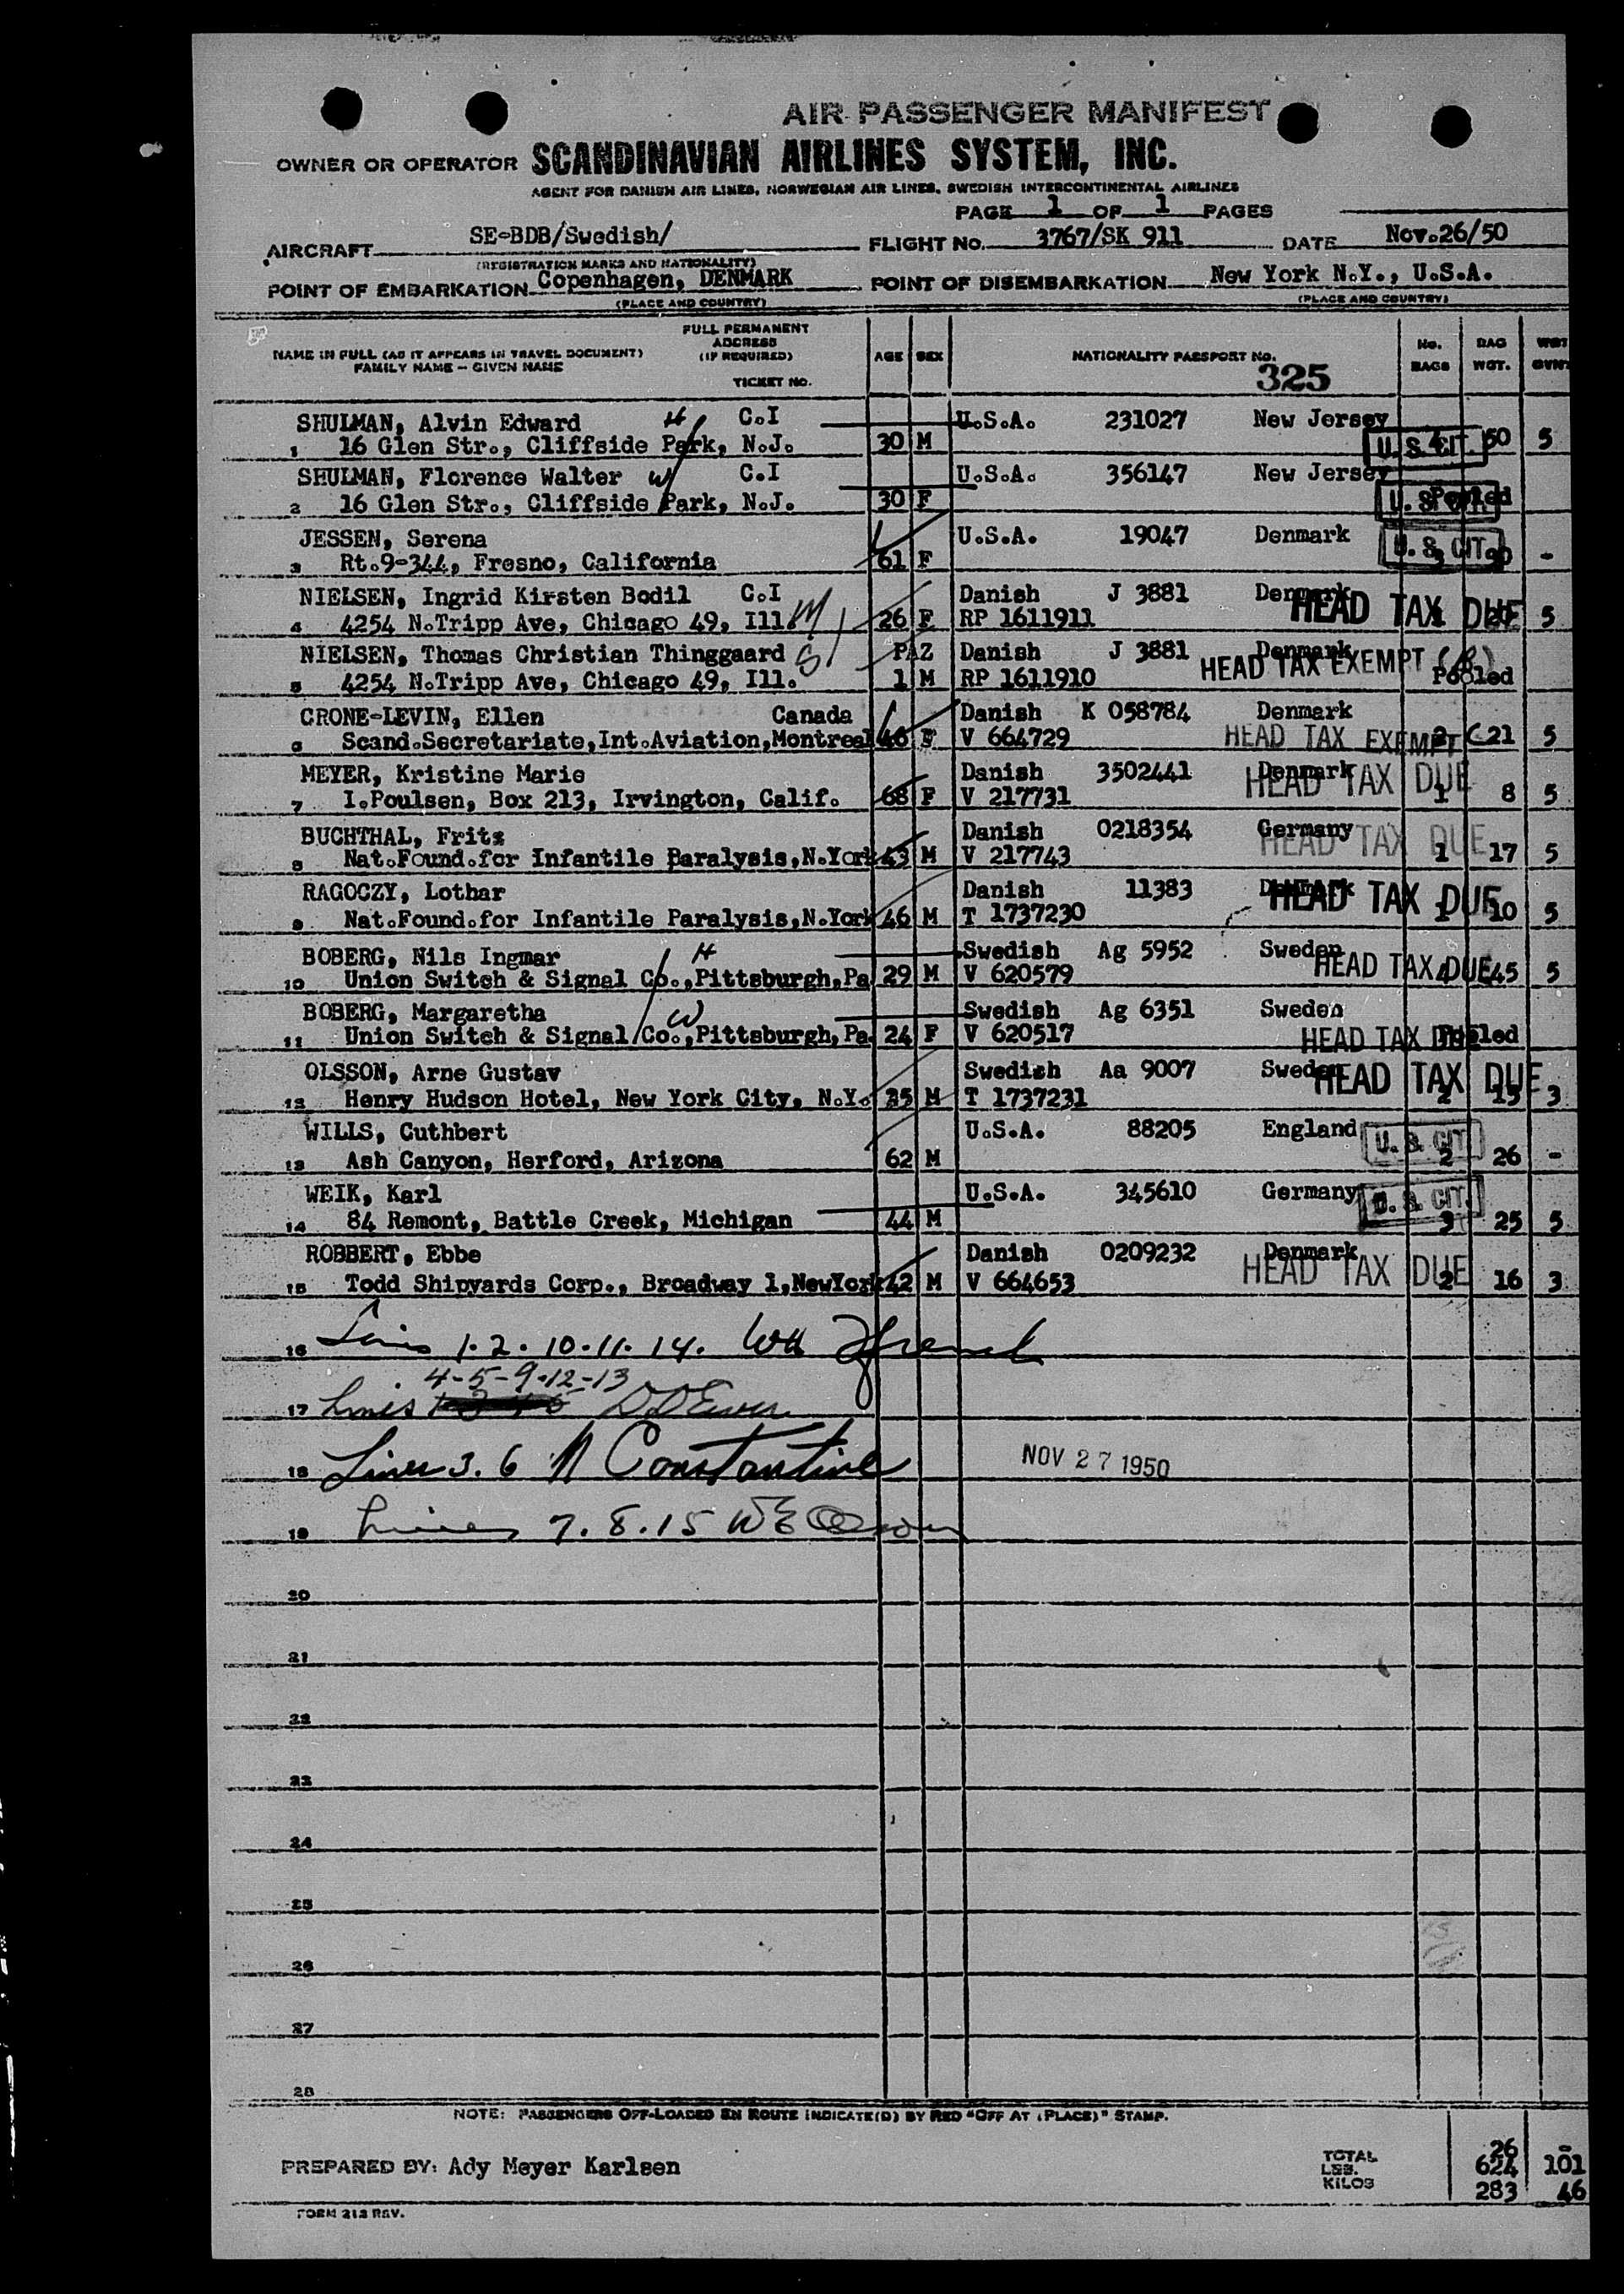 AIR PASSENGER MANIFEST
OWNER OR OPERATOR SCANDINAVIAN AIRLINES SYSTEM, INC.
AGENT FOR DANISH AIR LINES, NORWEGIAN AIR LINES, SWEDISH INTERCONTINENTAL AIRLINES
PAGE 1 OF 1 PAGES
AIRCRAFT SE-BDB/Swedish/ FLIGHT No. 3767/SK 911 DATE Nov.26/50
(REGISTRATION MARKS AND NATIONALITY)
POINT OF EMBARKATION Copenhagen, DENMARK POINT OF DISEMBARKATION New York N.Y., U.S.A.
(PLACE AND COUNTRY) (PLACE AND COUNTRY)
NAME IN FULL (AS IT APPEARS IN TRAVEL DOCUMENT) FAMILY NAME - GIVEN NAME FULL PERMANENT ADDRESS (IF REQUIRED) TICKET NO. AGE SEX NATIONALITY PASSPORT No. No. BAGS BAG WGT.
325
SHULMAN, Alvin Edward H C.I U.S.A. 231027 New Jersey
1 16 Glen Str., Cliffside Park, N.J. 30 M U.S. CIT. 50 5
SHULMAN, Florence Walter W C.I U.S.A. 356147 New Jersey
2 16 Glen Str., Cliffside Park, N.J. 30 F Pooled
JESSEN, Serena U.S.A. 19047 Denmark U.S. CIT.
3 Rt.9-344, Fresno, California 61 F -
NIELSEN, Ingrid Kirsten Bodil C.I Danish J 3881 Denmark HEAD TAX DUE
4 4254 N.Tripp Ave, Chicago 49, Ill. M 26 F RP 1611911 5
NIELSEN, Thomas Christian Thinggaard S PAZ Danish J 3881 Denmark HEAD TAX EXEMPT
5 4254 N.Tripp Ave, Chicago 49, Ill. 1 M RP 1611910 Pooled
CRONE-LEVIN, Ellen Canada Danish K 058784 Denmark
6 Scand.Secretariate,Int.Aviation,Montreal 46 F V 664729 HEAD TAX EXEMPT 2 21 5
MEYER, Kristine Marie Danish 3502441 Denmark HEAD TAX DUE
7 I.Poulsen, Box 213, Irvington, Calif. 68 F V 217731 1 8 5
BUCHTHAL, Fritz Danish 0218354 Germany HEAD TAX DUE
8 Nat.Found.for Infantile Paralysis,N.York 43 M V 217743 1 17 5
RAGOCZY, Lothar Danish 11383 Denmark HEAD TAX DUE
9 Nat.Found.for Infantile Paralysis,N.York 46 M T 1737230 1 10 5
BOBERG, Nils Ingmar H Swedish Ag 5952 Sweden HEAD TAX DUE
10 Union Switch & Signal Co.,Pittsburgh,Pa 29 M V 620579 4 45 5
BOBERG, Margaretha W Swedish Ag 6351 Sweden
11 Union Switch & Signal Co.,Pittsburgh,Pa. 24 F V 620517 HEAD TAX DUE Pooled
OLSSON, Arne Gustav Swedish Aa 9007 Sweden HEAD TAX DUE
12 Henry Hudson Hotel, New York City, N.Y. 35 M T 1737231 2 15 3
WILLS, Cuthbert U.S.A. 88205 England U.S. CIT.
13 Ash Canyon, Herford, Arizona 62 M 2 26 -
WEIK, Karl U.S.A. 345610 Germany U.S. CIT.
14 84 Remont, Battle Creek, Michigan 44 M 3 25 5
ROBBERT, Ebbe Danish 0209232 Denmark HEAD TAX DUE
15 Todd Shipyards Corp., Broadway 1,NewYork 42 M V 664653 2 16 3
16 1. 2. 10. 11. 14.
4-5-9-12-13
17 Lines
18 Lines 3. 6 N Constantine NOV 27 1950
19 Lines 7. 8. 15
20
21
22
23
24
25
26
27
28
NOTE: PASSENGERS OFF-LOADED EN ROUTE INDICATE(D) BY RED "OFF AT (PLACE)" STAMP.
PREPARED BY: Ady Meyer Karlsen
TOTAL 26 -
LBS. 624 101
KILOS 283 46
FORM 212 REV.